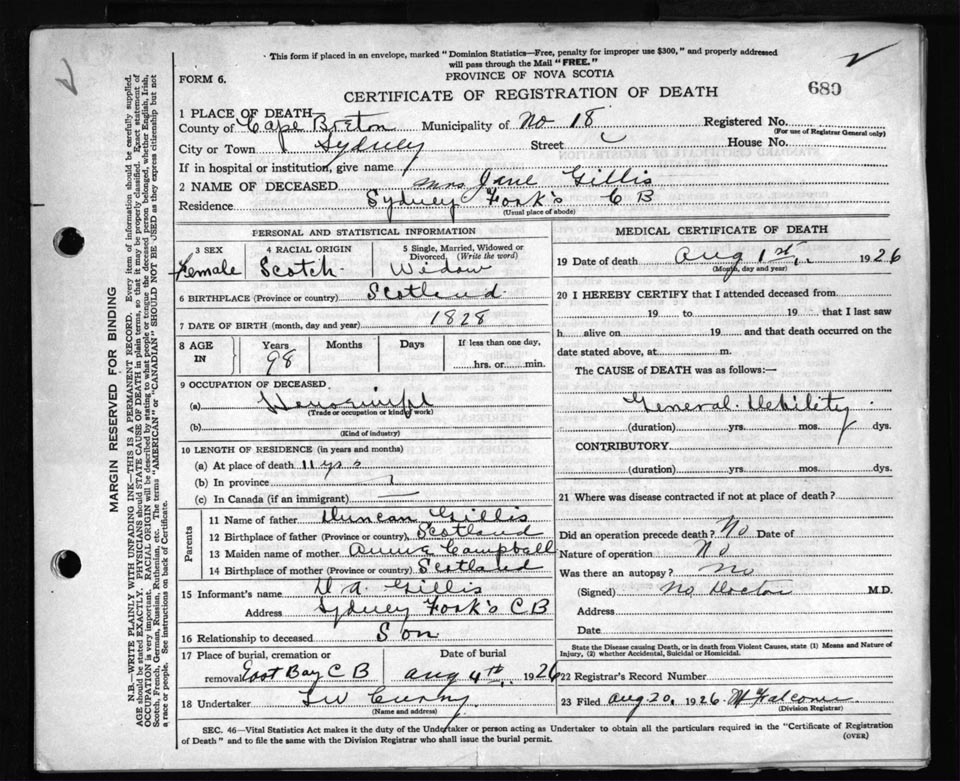 This form if placed in an envelope, marked "Dominion Statistics—Free, penalty for improper use $300," and properly addressed
will pass through the Mail "FREE."
PROVINCE OF NOVA SCOTIA
FORM 6.
CERTIFICATE OF REGISTRATION OF DEATH
689
1 PLACE OF DEATH
County of Cape Breton Municipality of No 18 Registered No.
(For use of Registrar General only)
City or Town Sydney Street House No.
If in hospital or institution, give name
2 NAME OF DECEASED Mrs Jane Gillis
Residence Sydney Fork's C B
(Usual place of abode)
PERSONAL AND STATISTICAL INFORMATION
3 SEX 4 RACIAL ORIGIN 5 Single, Married, Widowed or
Divorced. (Write the word)
Female Scotch Widow
6 BIRTHPLACE (Province or country) Scotland
7 DATE OF BIRTH (month, day and year) 1828
8 AGE IN Years Months Days If less than one day,
98 hrs. or min.
9 OCCUPATION OF DECEASED
(a)
(Trade or occupation or kind of work)
(b)
(Kind of industry)
10 LENGTH OF RESIDENCE (in years and months)
(a) At place of death 11 yrs
(b) In province
(c) In Canada (if an immigrant)
Parents
11 Name of father Duncan Gillis
12 Birthplace of father (Province or country) Scotland
13 Maiden name of mother Campbell
14 Birthplace of mother (Province or country) Scotland
15 Informant's name D A Gillis
Address Sydney Fork's C B
16 Relationship to deceased Son
17 Place of burial, cremation or Date of burial
removal East Bay C B Aug 4th 1926
18 Undertaker
(Name and address)
MEDICAL CERTIFICATE OF DEATH
19 Date of death Aug 1st 1926
(Month, day and year)
20 I HEREBY CERTIFY that I attended deceased from
19 to 19 that I last saw
h alive on 19 and that death occurred on the
date stated above, at m.
The CAUSE of DEATH was as follows:—
General Debility
(duration) yrs. mos. dys.
CONTRIBUTORY.
(duration) yrs. mos. dys.
21 Where was disease contracted if not at place of death?
Did an operation precede death? No Date of
Nature of operation No
Was there an autopsy? No
(Signed) No Doctor M.D.
Address
Date
State the Disease causing Death, or in death from Violent Causes, state (1) Means and Nature of
Injury, (2) whether Accidental, Suicidal or Homicidal.
22 Registrar's Record Number
23 Filed Aug 20, 1926
(Division Registrar)
SEC. 46—Vital Statistics Act makes it the duty of the Undertaker or person acting as Undertaker to obtain all the particulars required in the "Certificate of Registration
of Death" and to file the same with the Division Registrar who shall issue the burial permit. (OVER)
MARGIN RESERVED FOR BINDING
N.B.—WRITE PLAINLY WITH UNFADING INK—THIS IS A PERMANENT RECORD. Every item of information should be carefully supplied.
AGE should be stated EXACTLY. PHYSICIANS should STATE CAUSE OF DEATH in plain terms, so that it may be properly classified. Exact statement of
OCCUPATION is very important. RACIAL ORIGIN will be described by stating to what people or tongue the deceased person belonged, whether English, Irish,
Scotch, French, German, Russian, Ruthenian, etc. The terms "AMERICAN" or "CANADIAN" SHOULD NOT BE USED as they express citizenship but not
a race or people. See instructions on back of Certificate.